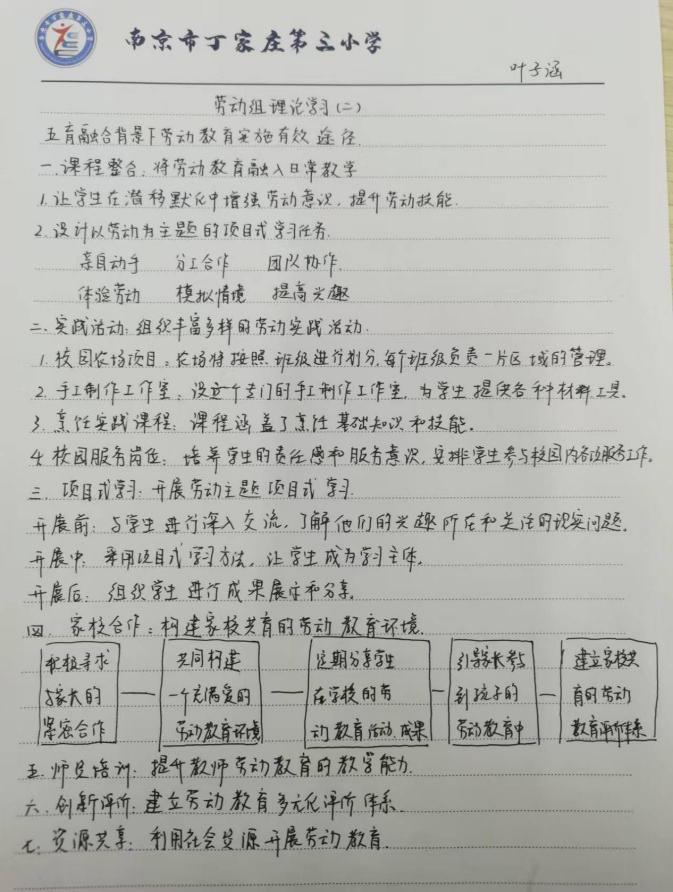 南京市丁家庄第三小学
叶子涵
劳动组理论学习(二)
五育融合背景下劳动教育实施有效途径.
一.课程整合:将劳动教育融入日常教学
1.让学生在潜移默化中增强劳动意识,提升劳动技能.
2.设计以劳动为主题的项目式学习任务.
亲自动手 分工合作 团队协作.
体验劳动 模拟情境 提高兴趣
二.实践活动:组织丰富多样的劳动实践活动.
1.校园农场项目:农场将按照班级进行划分,每个班级负责一片区域的管理。
2.手工制作工作室:设立个专门的手工制作工作室,为学生提供各种材料工具。
3.烹饪实践课程:课程涵盖了烹饪基础知识和技能。
4.校园服务岗位:培养学生的责任感和服务意识,安排学生参与校园内各项服务工作。
三.项目式学习:开展劳动主题项目式学习.
开展前:与学生进行深入交流,了解他们的兴趣所在和关注的现实问题.
开展中:采用项目式学习方法,让学生成为学习主体。
开展后:组织学生进行成果展示和分享。
四.家校合作:构建家校共育的劳动教育环境.
积极寻求
与家长的
紧密合作
共同构建
一个充满爱的
劳动教育环境
定期分享学生
在学校的劳
动教育活动、成果
引导家长参与
到孩子的
劳动教育中
建立家校共
育的劳动
教育评价体系
五.师资培训:提升教师劳动教育的教学能力.
六.创新评价:建立劳动教育多元化评价体系.
七.资源共享:利用社会资源开展劳动教育.